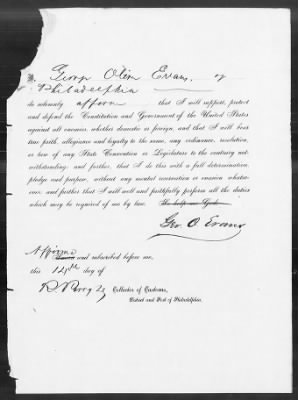 I, George Olin Evans, of
Philadelphia
do solemnly affirm that I will support, protect
and defend the Constitution and Government of the United States
against all enemies, whether domestic or foreign, and that I will bear
true faith, allegiance and loyalty to the same, any ordinance, resolution,
or law of any State Convention or Legislature to the contrary not-
withstanding; and further, that I do this with a full determination,
pledge and purpose, without any mental reservation or evasion whatso-
ever; and further that I will well and faithfully perform all the duties
which may be required of me by law. So help me God.
Geo. O. Evans
Affirmed
and subscribed before me,
this 14th day of
Collector of Customs,
District and Port of Philadelphia.